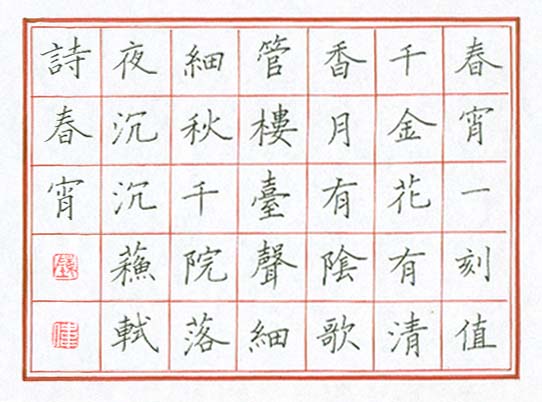 春宵一刻值
千金花有清
香月有陰歌
管樓臺聲細
細秋千院落
夜沉沉蘓軾
詩春宵